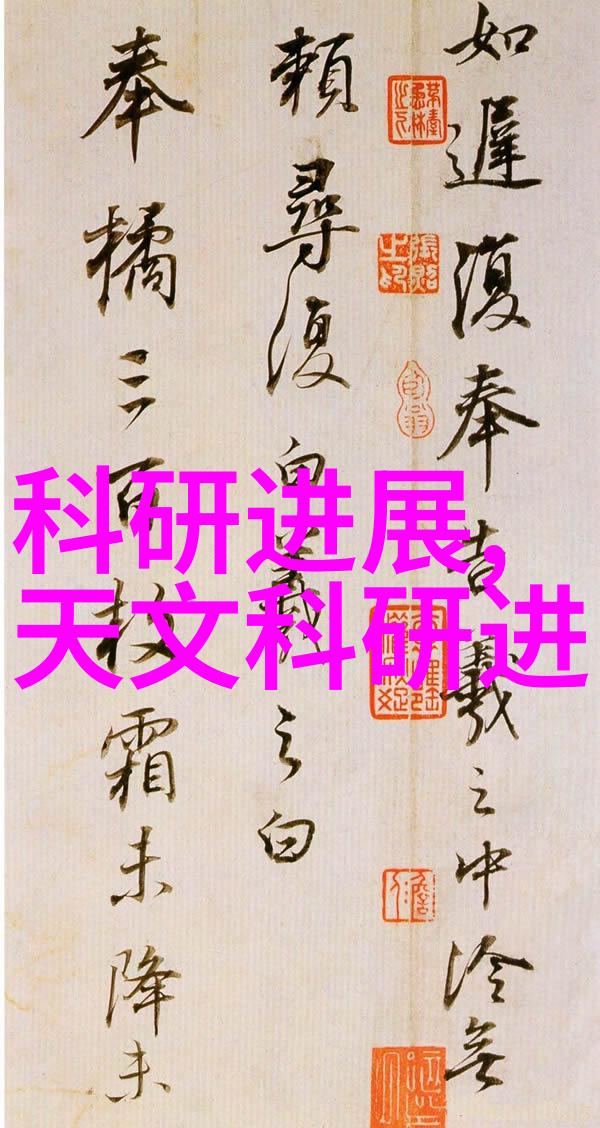 科研进展,
天文科研进
如遲復奉告羲之中冷無
賴尋復白羲之白
奉橘三百枚霜未降未